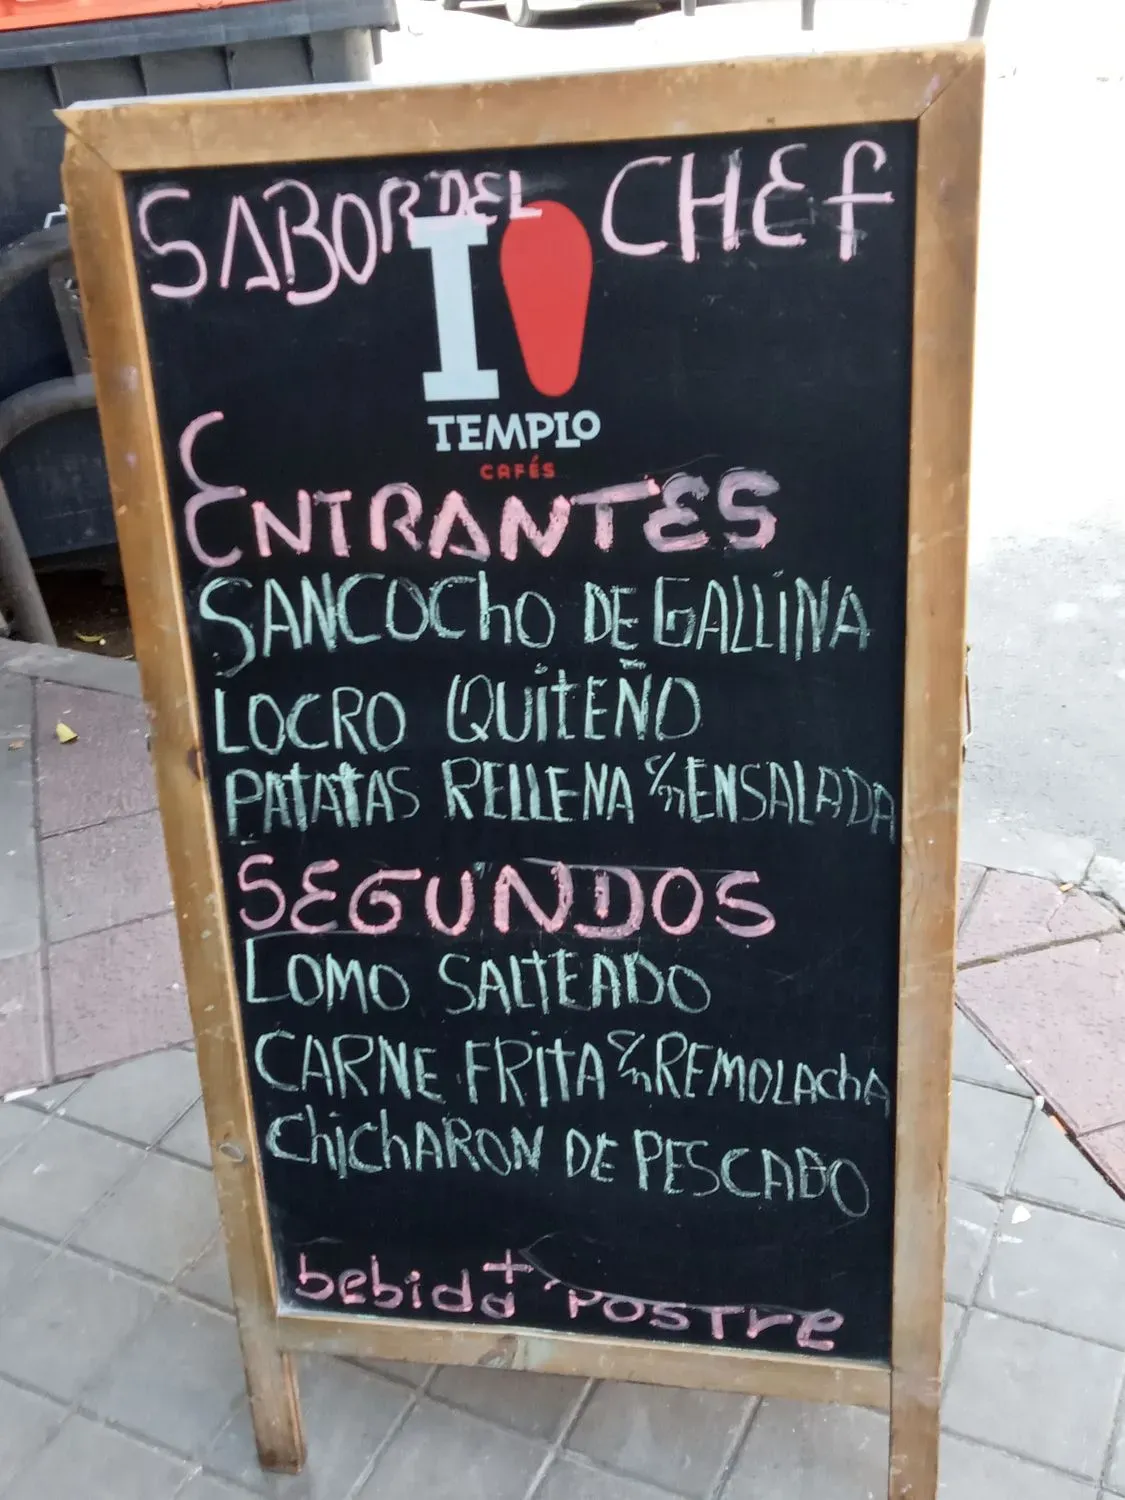 SABOR DEL CHEF
I
TEMPLO
CAFÉS
ENTRANTES
SANCOCHO DE GALLINA
LOCRO QUITEÑO
PATATAS RELLENA C/n ENSALADA
SEGUNDOS
LOMO SALTEADO
CARNE FRITA C/n REMOLACHA
CHICHARON DE PESCADO
bebida + POSTRE